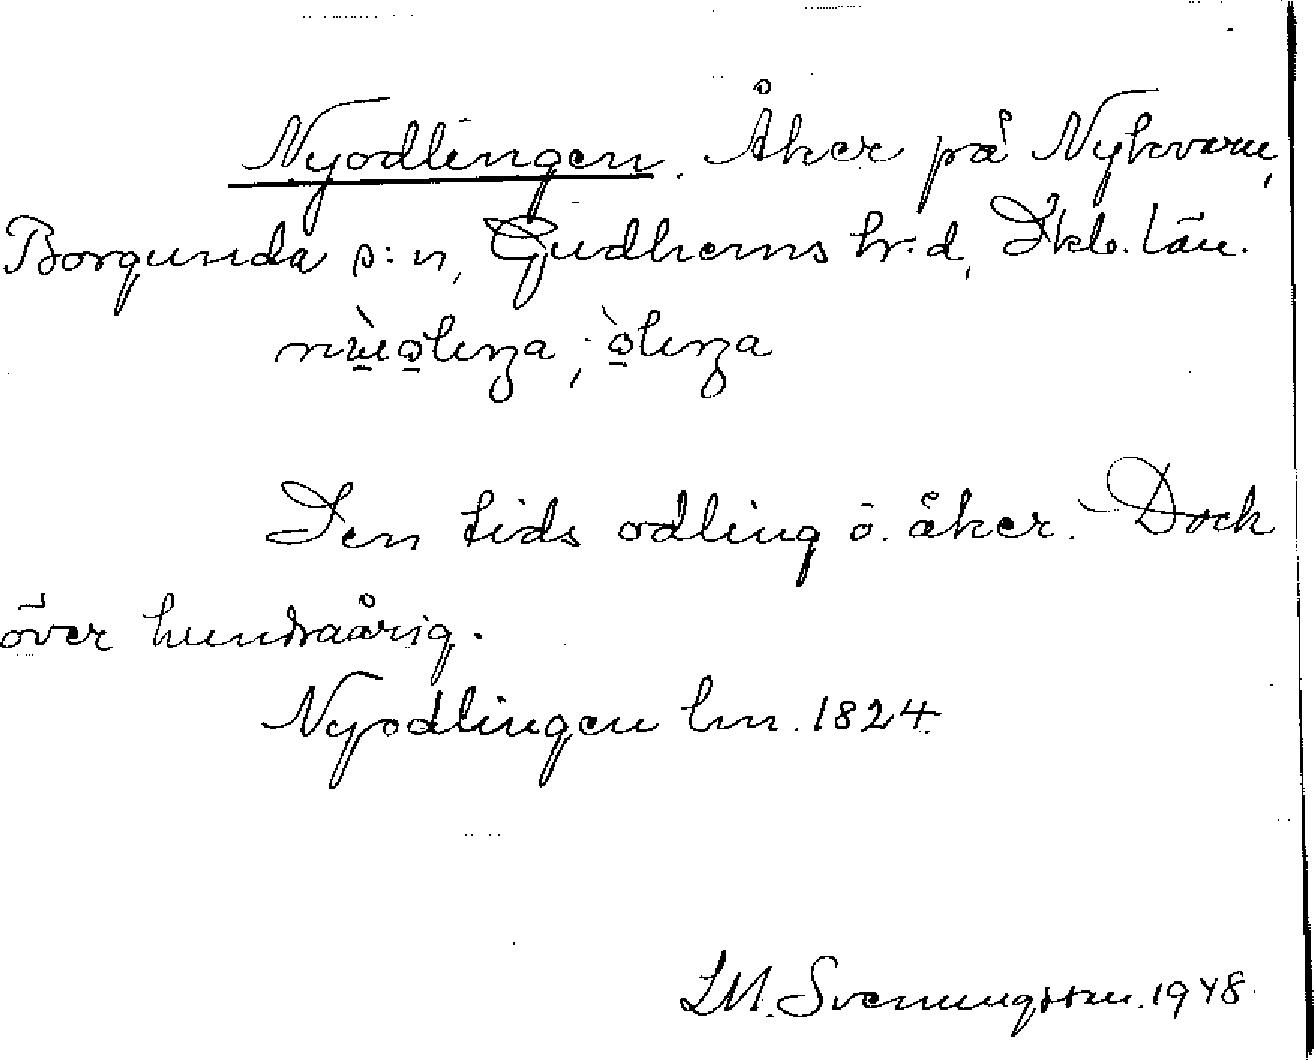 Nyodlingen. Åker på Nykvarn,
Borgunda s:n, Gudhems hr:d, Skb. län.
Den tids odling o. åker. Dock
över hundraårig.
Nyodlingen lm. 1824.
LM. Svenungsson. 1948.